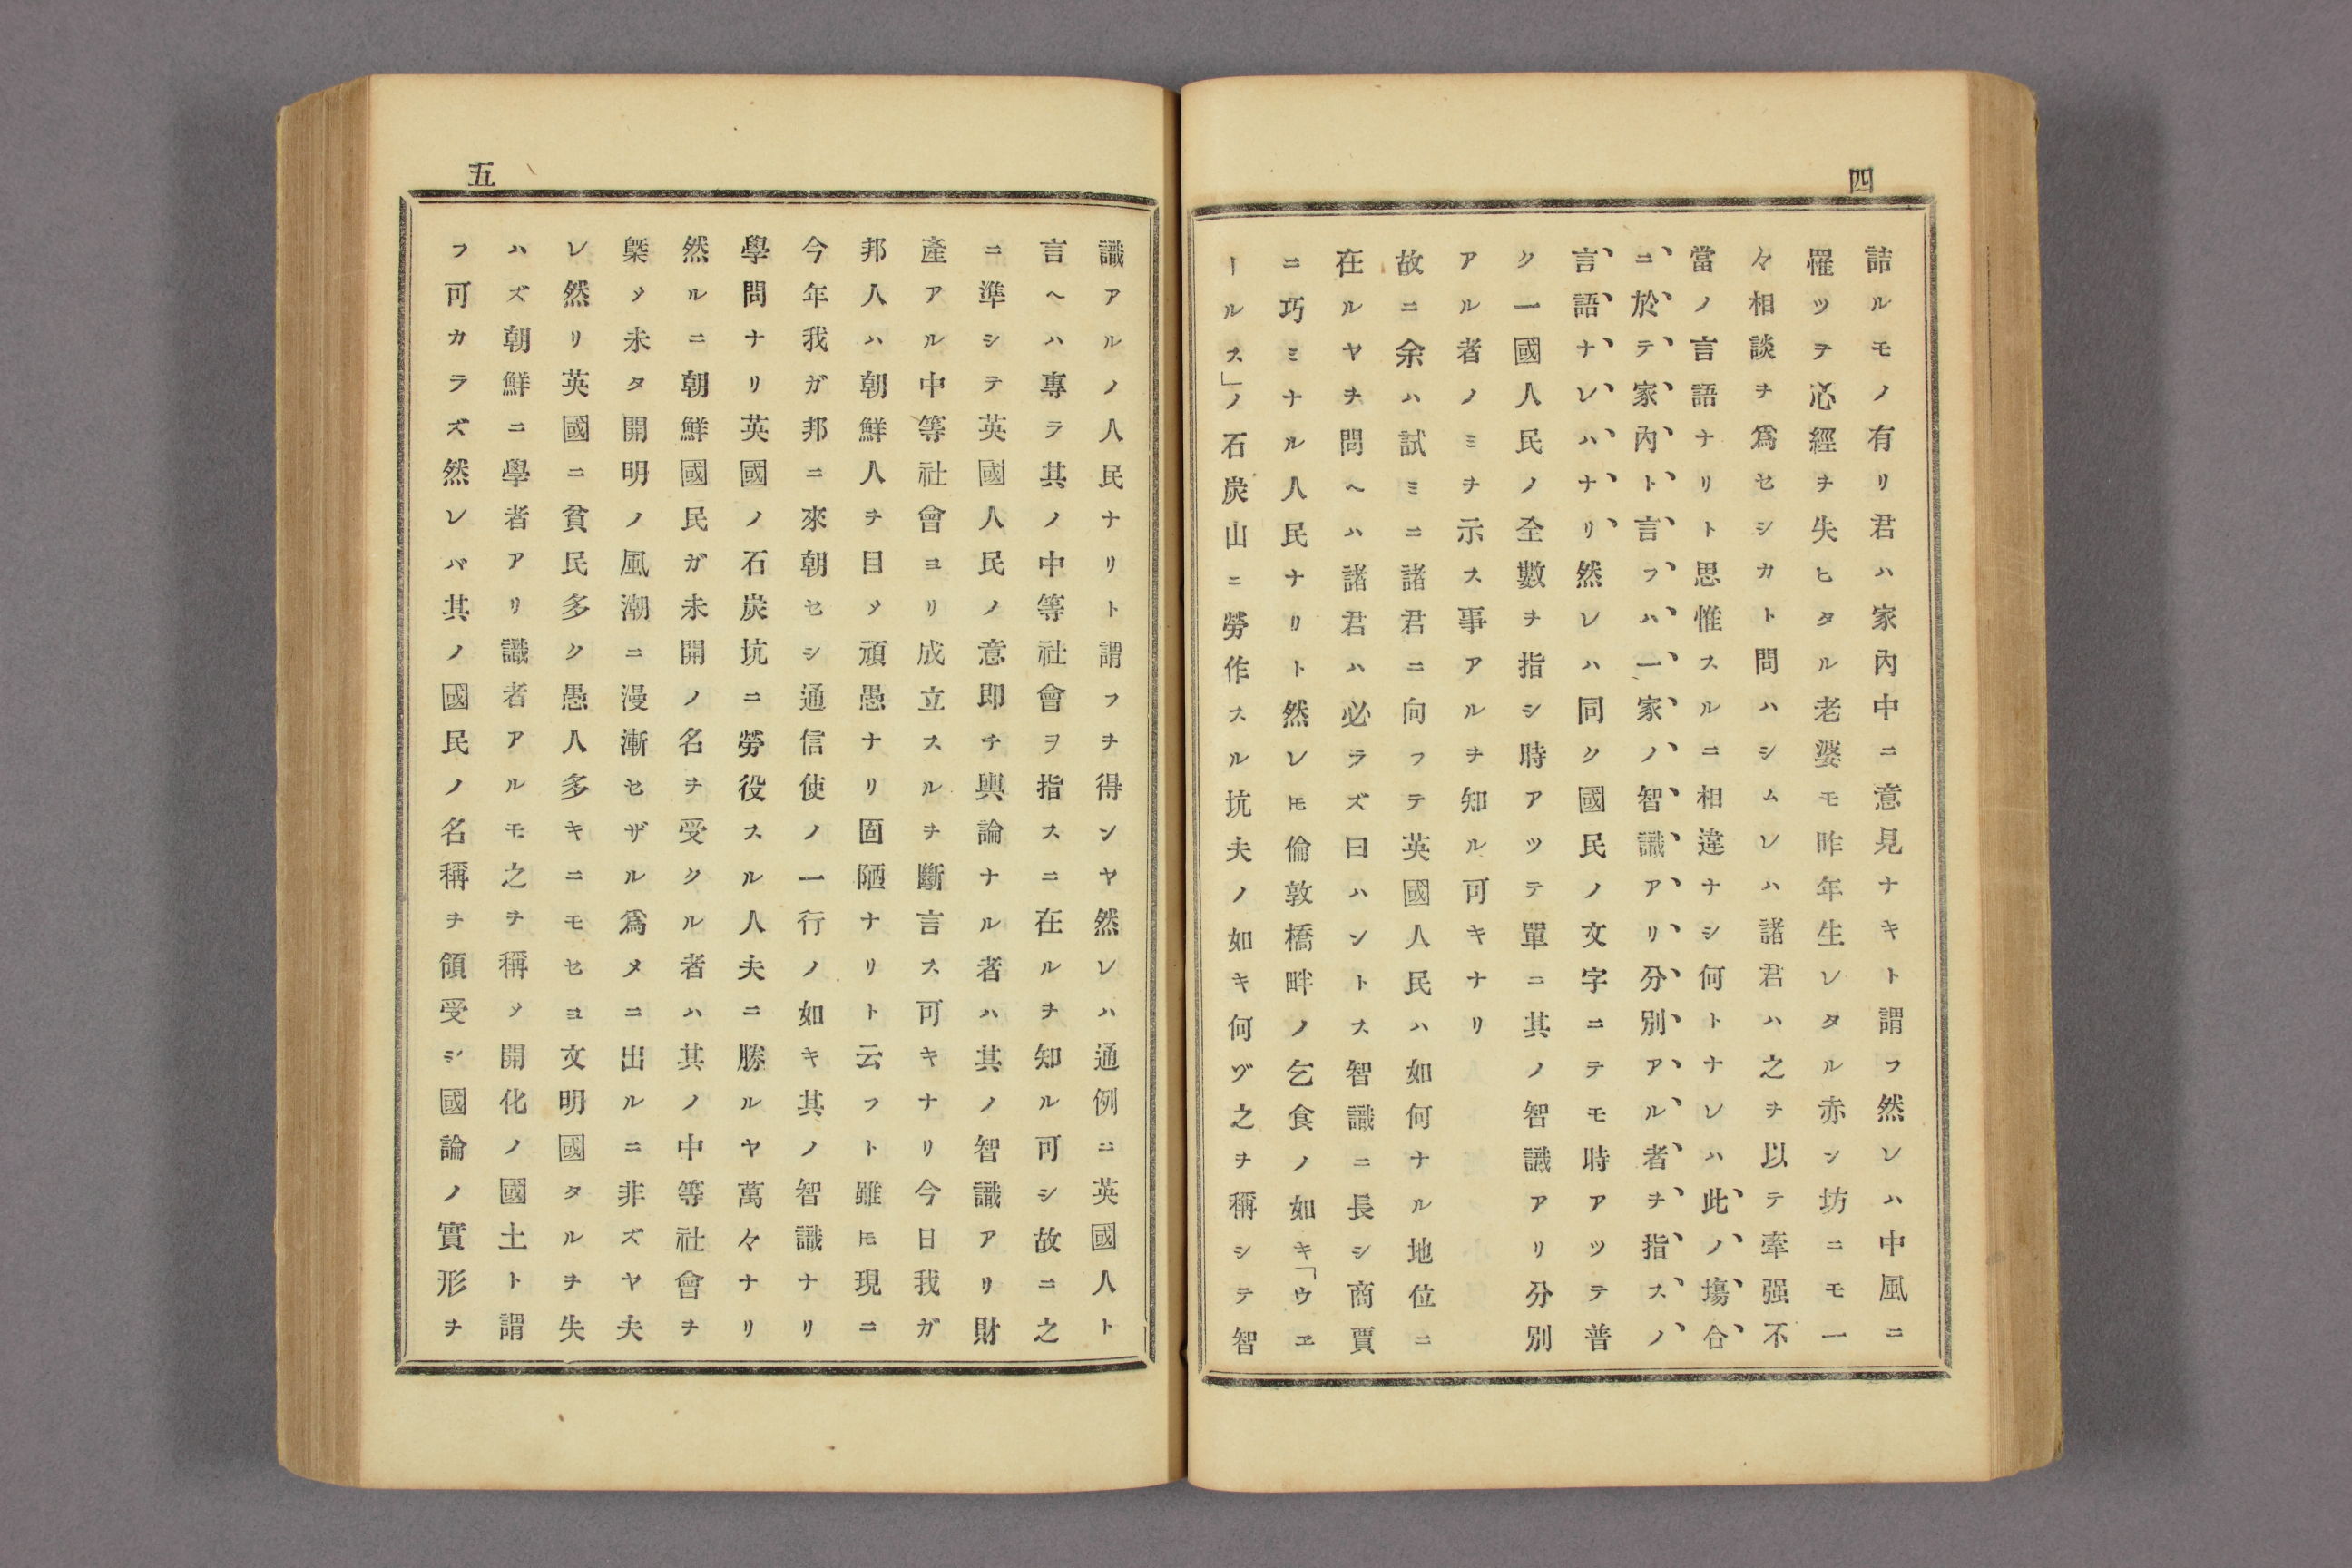 四
詰ルモノ有リ君ハ家內中ニ意見ナキト謂フ然レハ中風ニ
罹ツテ必經ヲ失ヒタル老婆モ昨年生レタル赤ン坊ニモ一
々相談ヲ爲セシカト問ハシムレハ諸君ハ之ヲ以テ牽强不
當ノ言語ナリト思惟スルニ相違ナシ何トナレハ此ノ塲合
ニ於テ家內ト言フハ一家ノ智識アリ分別アル者ヲ指スノ
言語ナレハナリ然レハ同ク國民ノ文字ニテモ時アツテ普
ク一國人民ノ全數ヲ指シ時アツテ單ニ其ノ智識アリ分別
アル者ノミヲ示ス事アルヲ知ル可キナリ
故ニ余ハ試ミニ諸君ニ向フテ英國人民ハ如何ナル地位ニ
在ルヤヲ問ヘハ諸君ハ必ラズ曰ハントス智識ニ長シ商賈
ニ巧ミナル人民ナリト然レ𪜈倫敦橋畔ノ乞食ノ如キ「ウヱ
ールス」ノ石炭山ニ勞作スル坑夫ノ如キ何ヅ之ヲ稱シテ智
五
識アルノ人民ナリト謂フヲ得ンヤ然レハ通例ニ英國人ト
言ヘハ專ラ其ノ中等社會ヲ指スニ在ルヲ知ル可シ故ニ之
ニ準シテ英國人民ノ意即チ輿論ナル者ハ其ノ智識アリ財
產アル中等社會ヨリ成立スルヲ斷言ス可キナリ今日我ガ
邦人ハ朝鮮人ヲ目〆頑愚ナリ固陋ナリト云フト雖𪜈現ニ
今年我ガ邦ニ來朝セシ通信使ノ一行ノ如キ其ノ智識ナリ
學問ナリ英國ノ石炭坑ニ勞役スル人夫ニ勝ルヤ萬々ナリ
然ルニ朝鮮國民ガ未開ノ名ヲ受クル者ハ其ノ中等社會ヲ
槩〆未タ開明ノ風潮ニ漫漸セザル爲メニ出ルニ非ズヤ夫
レ然リ英國ニ貧民多ク愚人多キニモセヨ文明國タルヲ失
ハズ朝鮮ニ學者アリ識者アルモ之ヲ稱〆開化ノ國土ト謂
フ可カラズ然レバ其ノ國民ノ名稱ヲ領受シ國論ノ實形ヲ